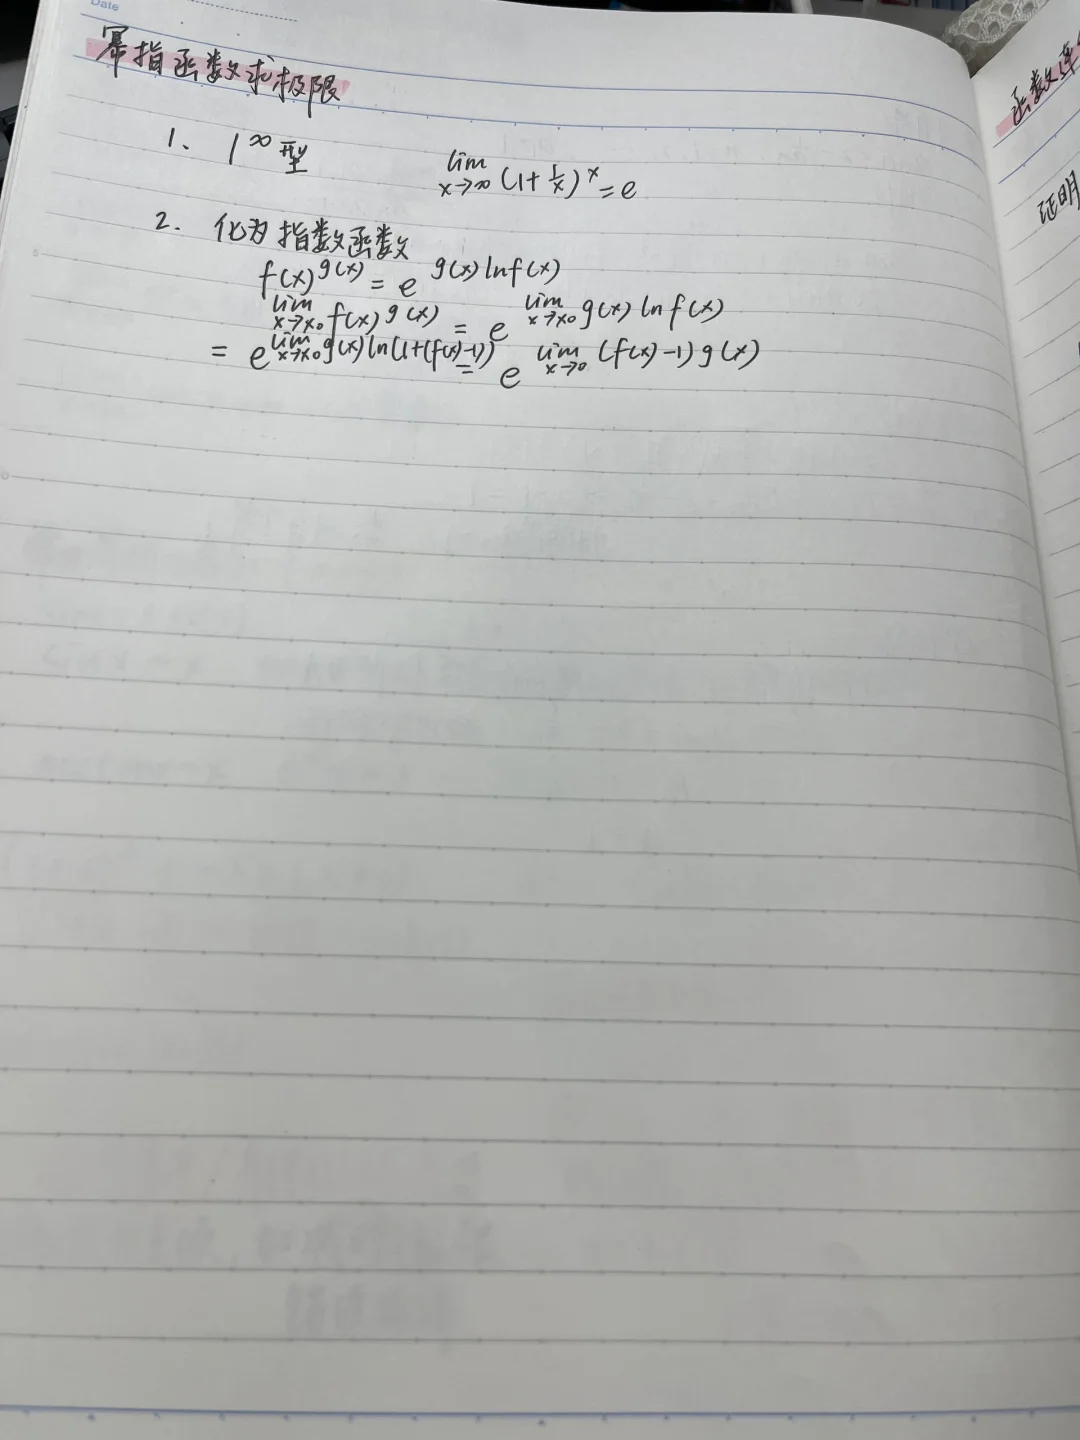 Date
幂指函数求极限
1、 1^∞型 lim x→∞ (1+1/x)^x = e
2. 化为指数函数
f(x)^g(x) = e^g(x)lnf(x)
lim x→x₀ f(x)^g(x) = e^lim x→x₀ g(x)lnf(x)
= e^lim x→x₀ g(x)ln(1+(f(x)-1) = e^lim x→0 (f(x)-1)g(x)
函数连
证明